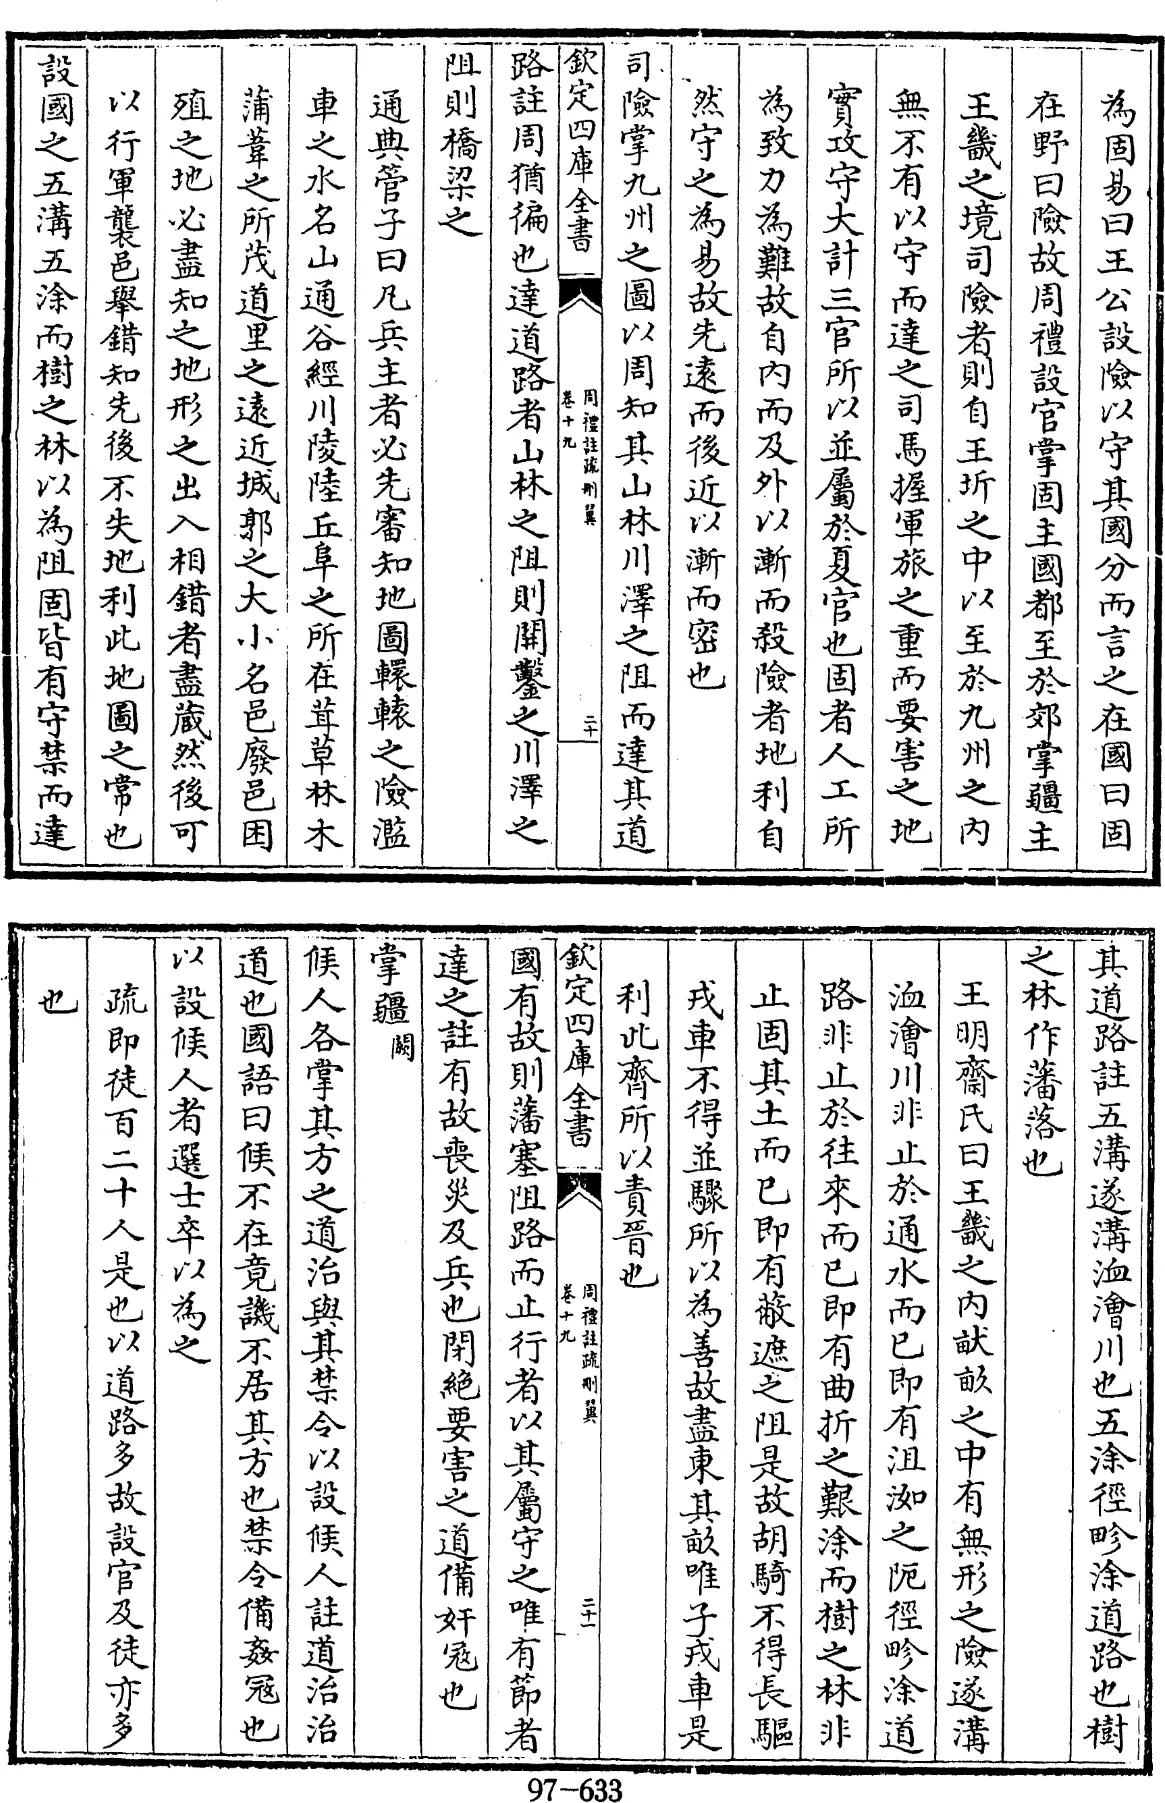 為固易曰王公設險以守其國分而言之在國曰固
在野曰險故周禮設官掌固主國都至於郊掌疆主
王畿之境司險者則自王圻之中以至於九州之内
無不有以守而達之司馬握軍旅之重而要害之地
實攻守大計三官所以並屬於夏官也固者人工所
為致力為難故自内而及外以漸而殺險者地利自
然守之為易故先逺而後近以漸而密也
司險掌九州之圖以周知其山林川澤之阻而達其道
欽定四庫全書
周禮註疏刪翼
卷十九
二十
路註周猶徧也達道路者山林之阻則開鑿之川澤之
阻則橋梁之
通典管子曰凡兵主者必先審知地圖轘轅之險濫
車之水名山通谷經川陵陸丘阜之所在苴草林木
蒲葦之所茂道里之逺近城郭之大小名邑廢邑困
殖之地必盡知之地形之出入相錯者盡蔵然後可
以行軍襲邑舉錯知先後不失地利此地圖之常也
設國之五溝五涂而樹之林以為阻固皆有守禁而達
其道路註五溝遂溝洫澮川也五涂徑畛涂道路也樹
之林作藩落也
王明齋氏曰王畿之内畎畝之中有無形之險遂溝
洫澮川非止於通水而已即有沮洳之阨徑畛涂道
路非止於往來而已即有曲折之艱涂而樹之林非
止固其土而已即有蔽遮之阻是故胡騎不得長驅
戎車不得並驟所以為善故盡東其畝唯子戎車是
利此齊所以責晉也
欽定四庫全書
周禮註疏刪翼
卷十九
二十一
國有故則藩塞阻路而止行者以其屬守之唯有節者
達之註有故喪災及兵也閉絶要害之道備奸冦也
掌疆闕
候人各掌其方之道治與其禁令以設候人註道治治
道也國語曰候不在竟譏不居其方也禁令備姦冦也
以設候人者選士卒以為之
疏即徒百二十人是也以道路多故設官及徒亦多
也
97-633